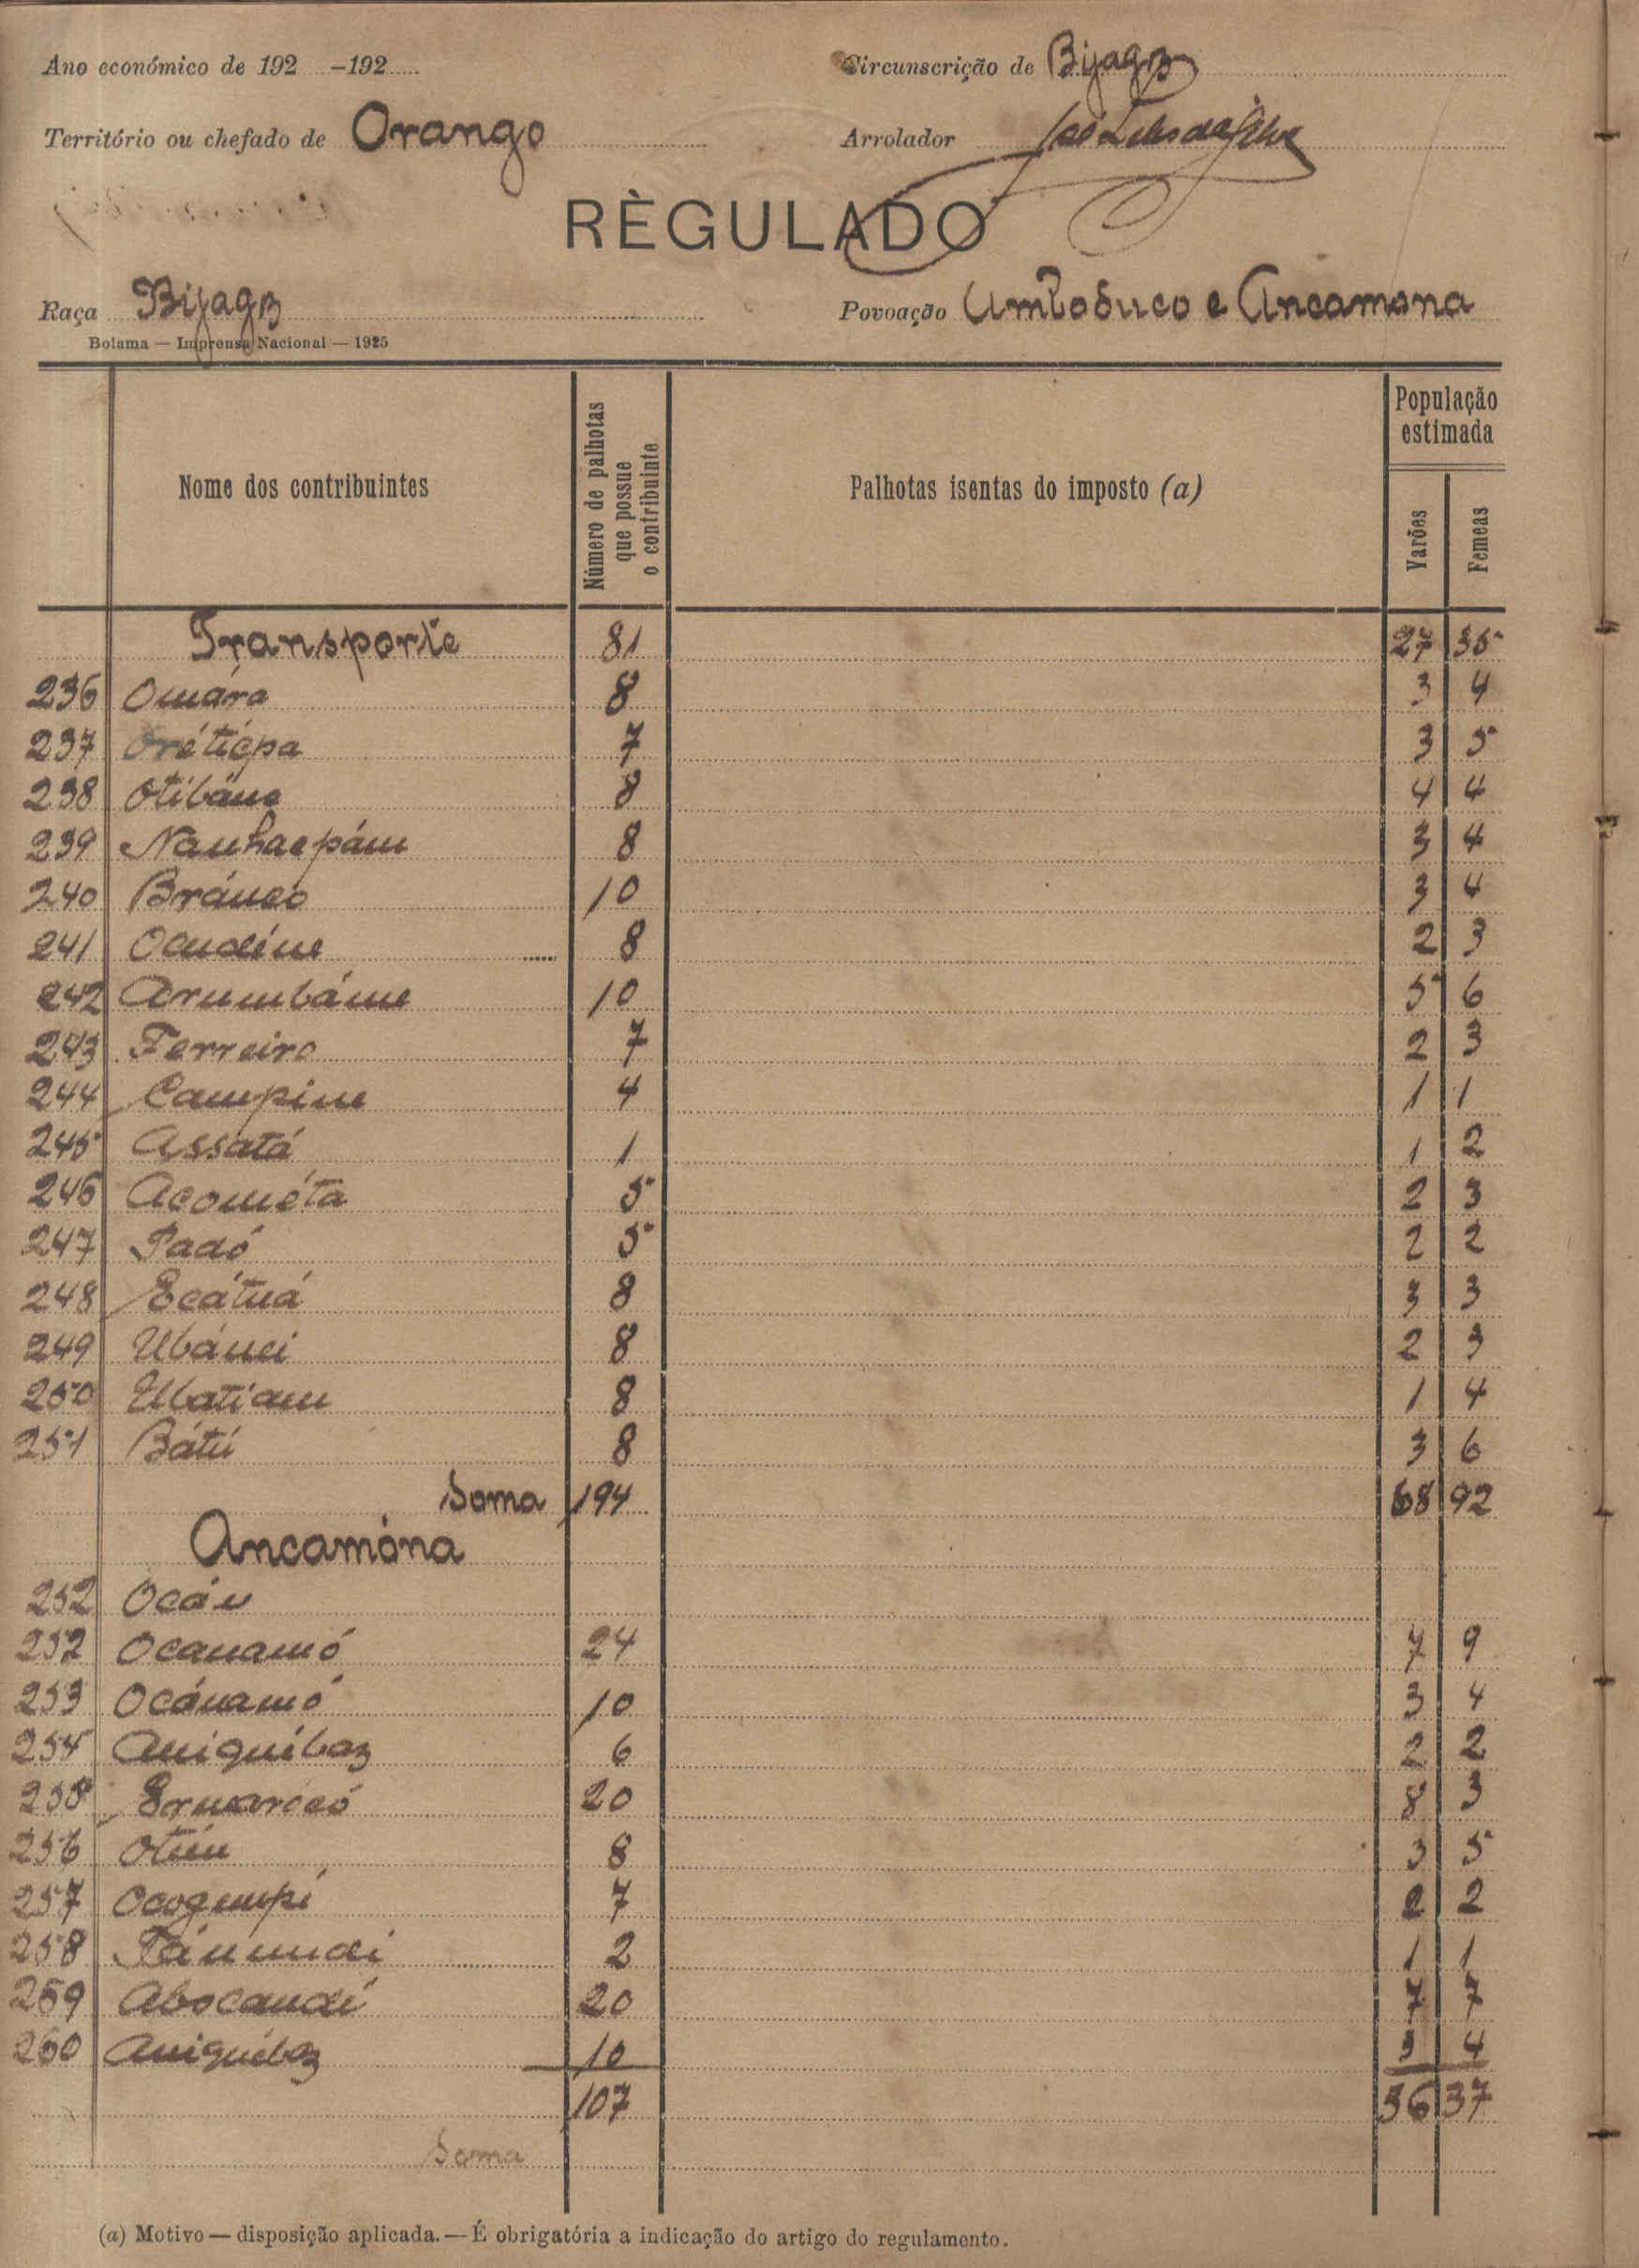 Ano económico de 192 -192 Circunscrição de Bijagoz
Território ou chefado de Orango Arrolador
RÈGULADO
Raça Bijagoz Povoação Umbobuco e Ancamona
Bolama — Imprensa Nacional — 1925
Nome dos contribuintes Número de palhotas que possue o contribuinte Palhotas isentas do imposto (a) População estimada Varões Femeas
Transporte 81 27 35
236 Omára 8 3 4
237 Orétiépa 7 3 5
238 Otibáne 8 4 4
239 8 3 4
240 Bránco 10 3 4
241 8 2 3
242 Arumbáme 10 5 6
243 Ferreiro 7 2 3
244 Campine 4 1 1
245 Assatá 1 1 2
246 Acométa 5 2 3
247 Padó 5 2 2
248 Ecátuá 8 3 3
249 Ubánei 8 2 3
250 Ubatiam 8 1 4
251 Bátú 8 3 6
Soma 194 68 92
Ancamóna
252 Ocán
252 Ocanamó 24 7 9
253 Ocánamó 10 3 4
254 Aniquíboz 6 2 2
255 20 8 3
256 Otún 8 3 5
257 7 2 2
258 2 1 1
259 Abocandí 20 7 7
260 Aniquéboz 10 3 4
107 36 37
Soma
(a) Motivo — disposição aplicada. — É obrigatória a indicação do artigo do regulamento.